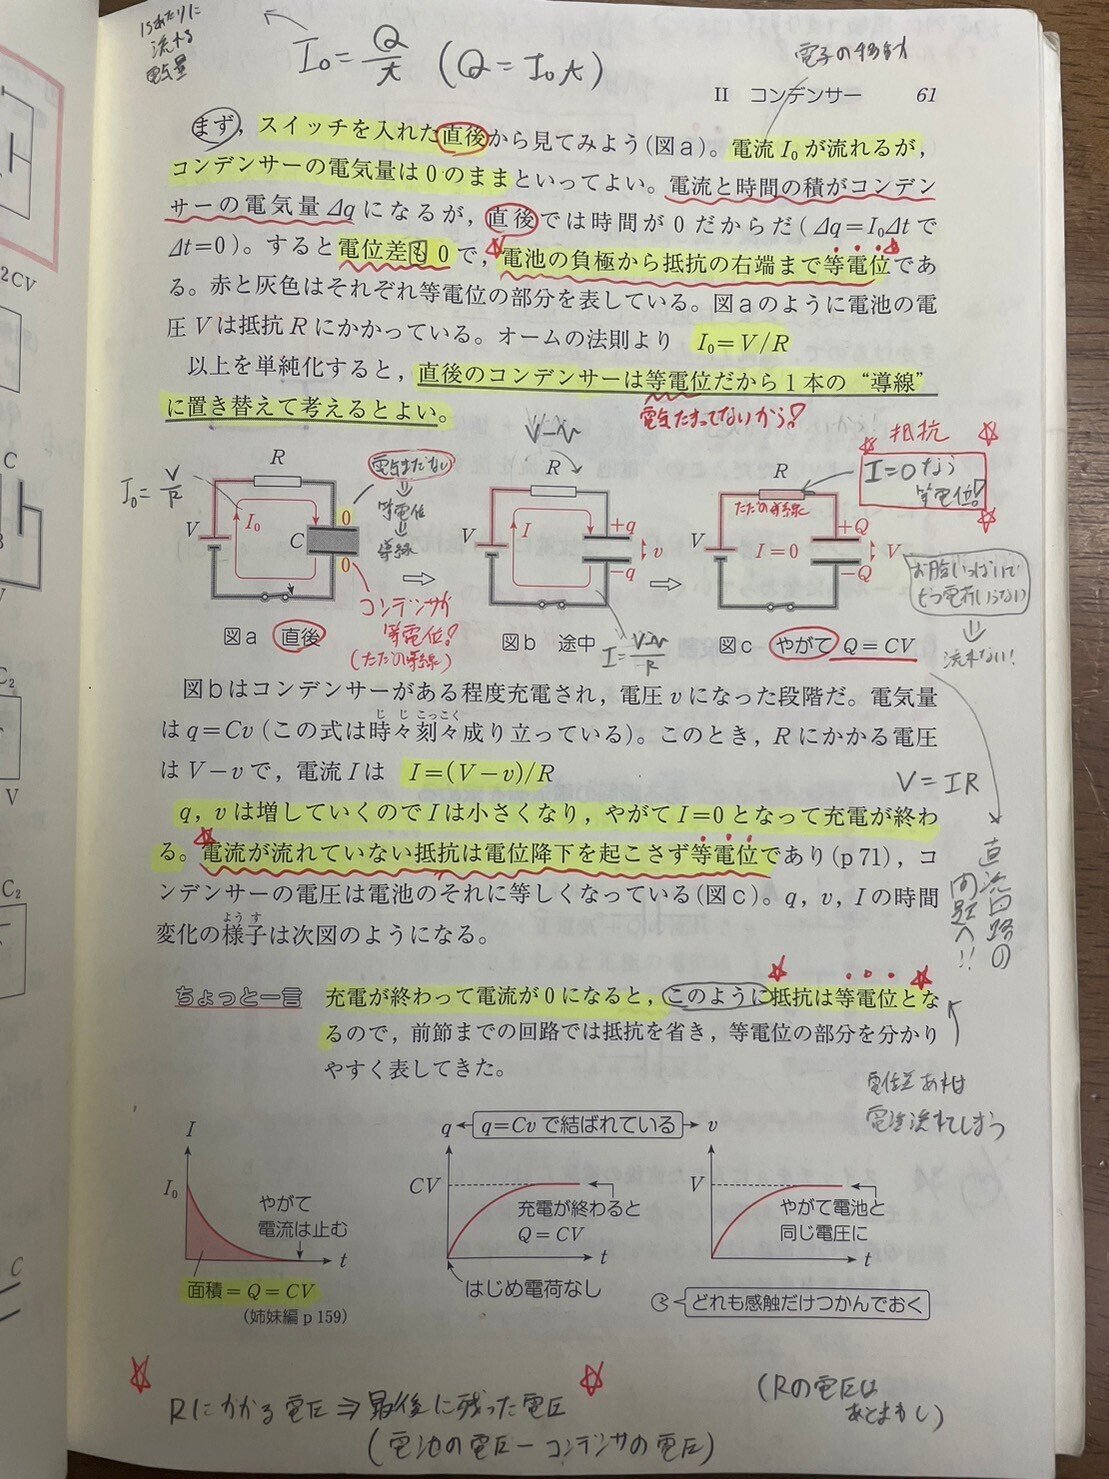 1sあたりに
流れる
電気量
I₀ = Q/t (Q = I₀t)
電子の移動
II コンデンサー 61
まず，スイッチを入れた直後から見てみよう(図a)。電流 I₀ が流れるが，
コンデンサーの電気量は0のままといってよい。電流と時間の積がコンデン
サーの電気量Δqになるが，直後では時間が0だからだ(Δq=I₀Δtで
Δt=0)。すると電位差も0で，電池の負極から抵抗の右端まで等電位であ
る。赤と灰色はそれぞれ等電位の部分を表している。図aのように電池の電
圧Vは抵抗Rにかかっている。オームの法則より I₀=V/R
以上を単純化すると，直後のコンデンサーは等電位だから1本の“導線”
に置き替えて考えるとよい。
電気たまってないから!
V-v
抵抗
I=0なら
等電位!
I₀ = V/R
R
V
I₀
C
0
0
電気まだない
⇓
等電位
⇓
導線
コンデンサが
等電位!
(ただの導線)
図a 直後
R
V
I
+q
-q
v
I = V-v/R
図b 途中
R
ただの導線
V
I=0
+Q
-Q
V
図c やがて Q=CV
お腹いっぱいで
もう電荷いらない
⇓
流れない!
図bはコンデンサーがある程度充電され，電圧vになった段階だ。電気量
はq=Cv(この式は時々刻々成り立っている)。このとき，Rにかかる電圧
じ じ こっこく
はV-vで，電流Iは I=(V-v)/R
V = IR
q，vは増していくのでIは小さくなり，やがてI=0となって充電が終わ
る。電流が流れていない抵抗は電位降下を起こさず等電位であり(p71)，コ
ンデンサーの電圧は電池のそれに等しくなっている(図c)。q，v，Iの時間
変化の様子は次図のようになる。
よう す
直流回路の
問題へ!!
ちょっと一言 充電が終わって電流が0になると，このように抵抗は等電位とな
るので，前節までの回路では抵抗を省き，等電位の部分を分かり
やすく表してきた。
電位差あれば
電流流れてしまう
I
I₀
やがて
電流は止む
t
面積=Q=CV
(姉妹編 p 159)
q ← q=Cvで結ばれている → v
CV
充電が終わると
Q=CV
t
はじめ電荷なし
V
やがて電池と
同じ電圧に
t
どれも感触だけつかんでおく
Rにかかる電圧⇒最後に残った電圧
(電池の電圧－コンデンサの電圧)
(Rの電圧は
あとまわし)
2CV
C
V
C₂
V
C₂
C